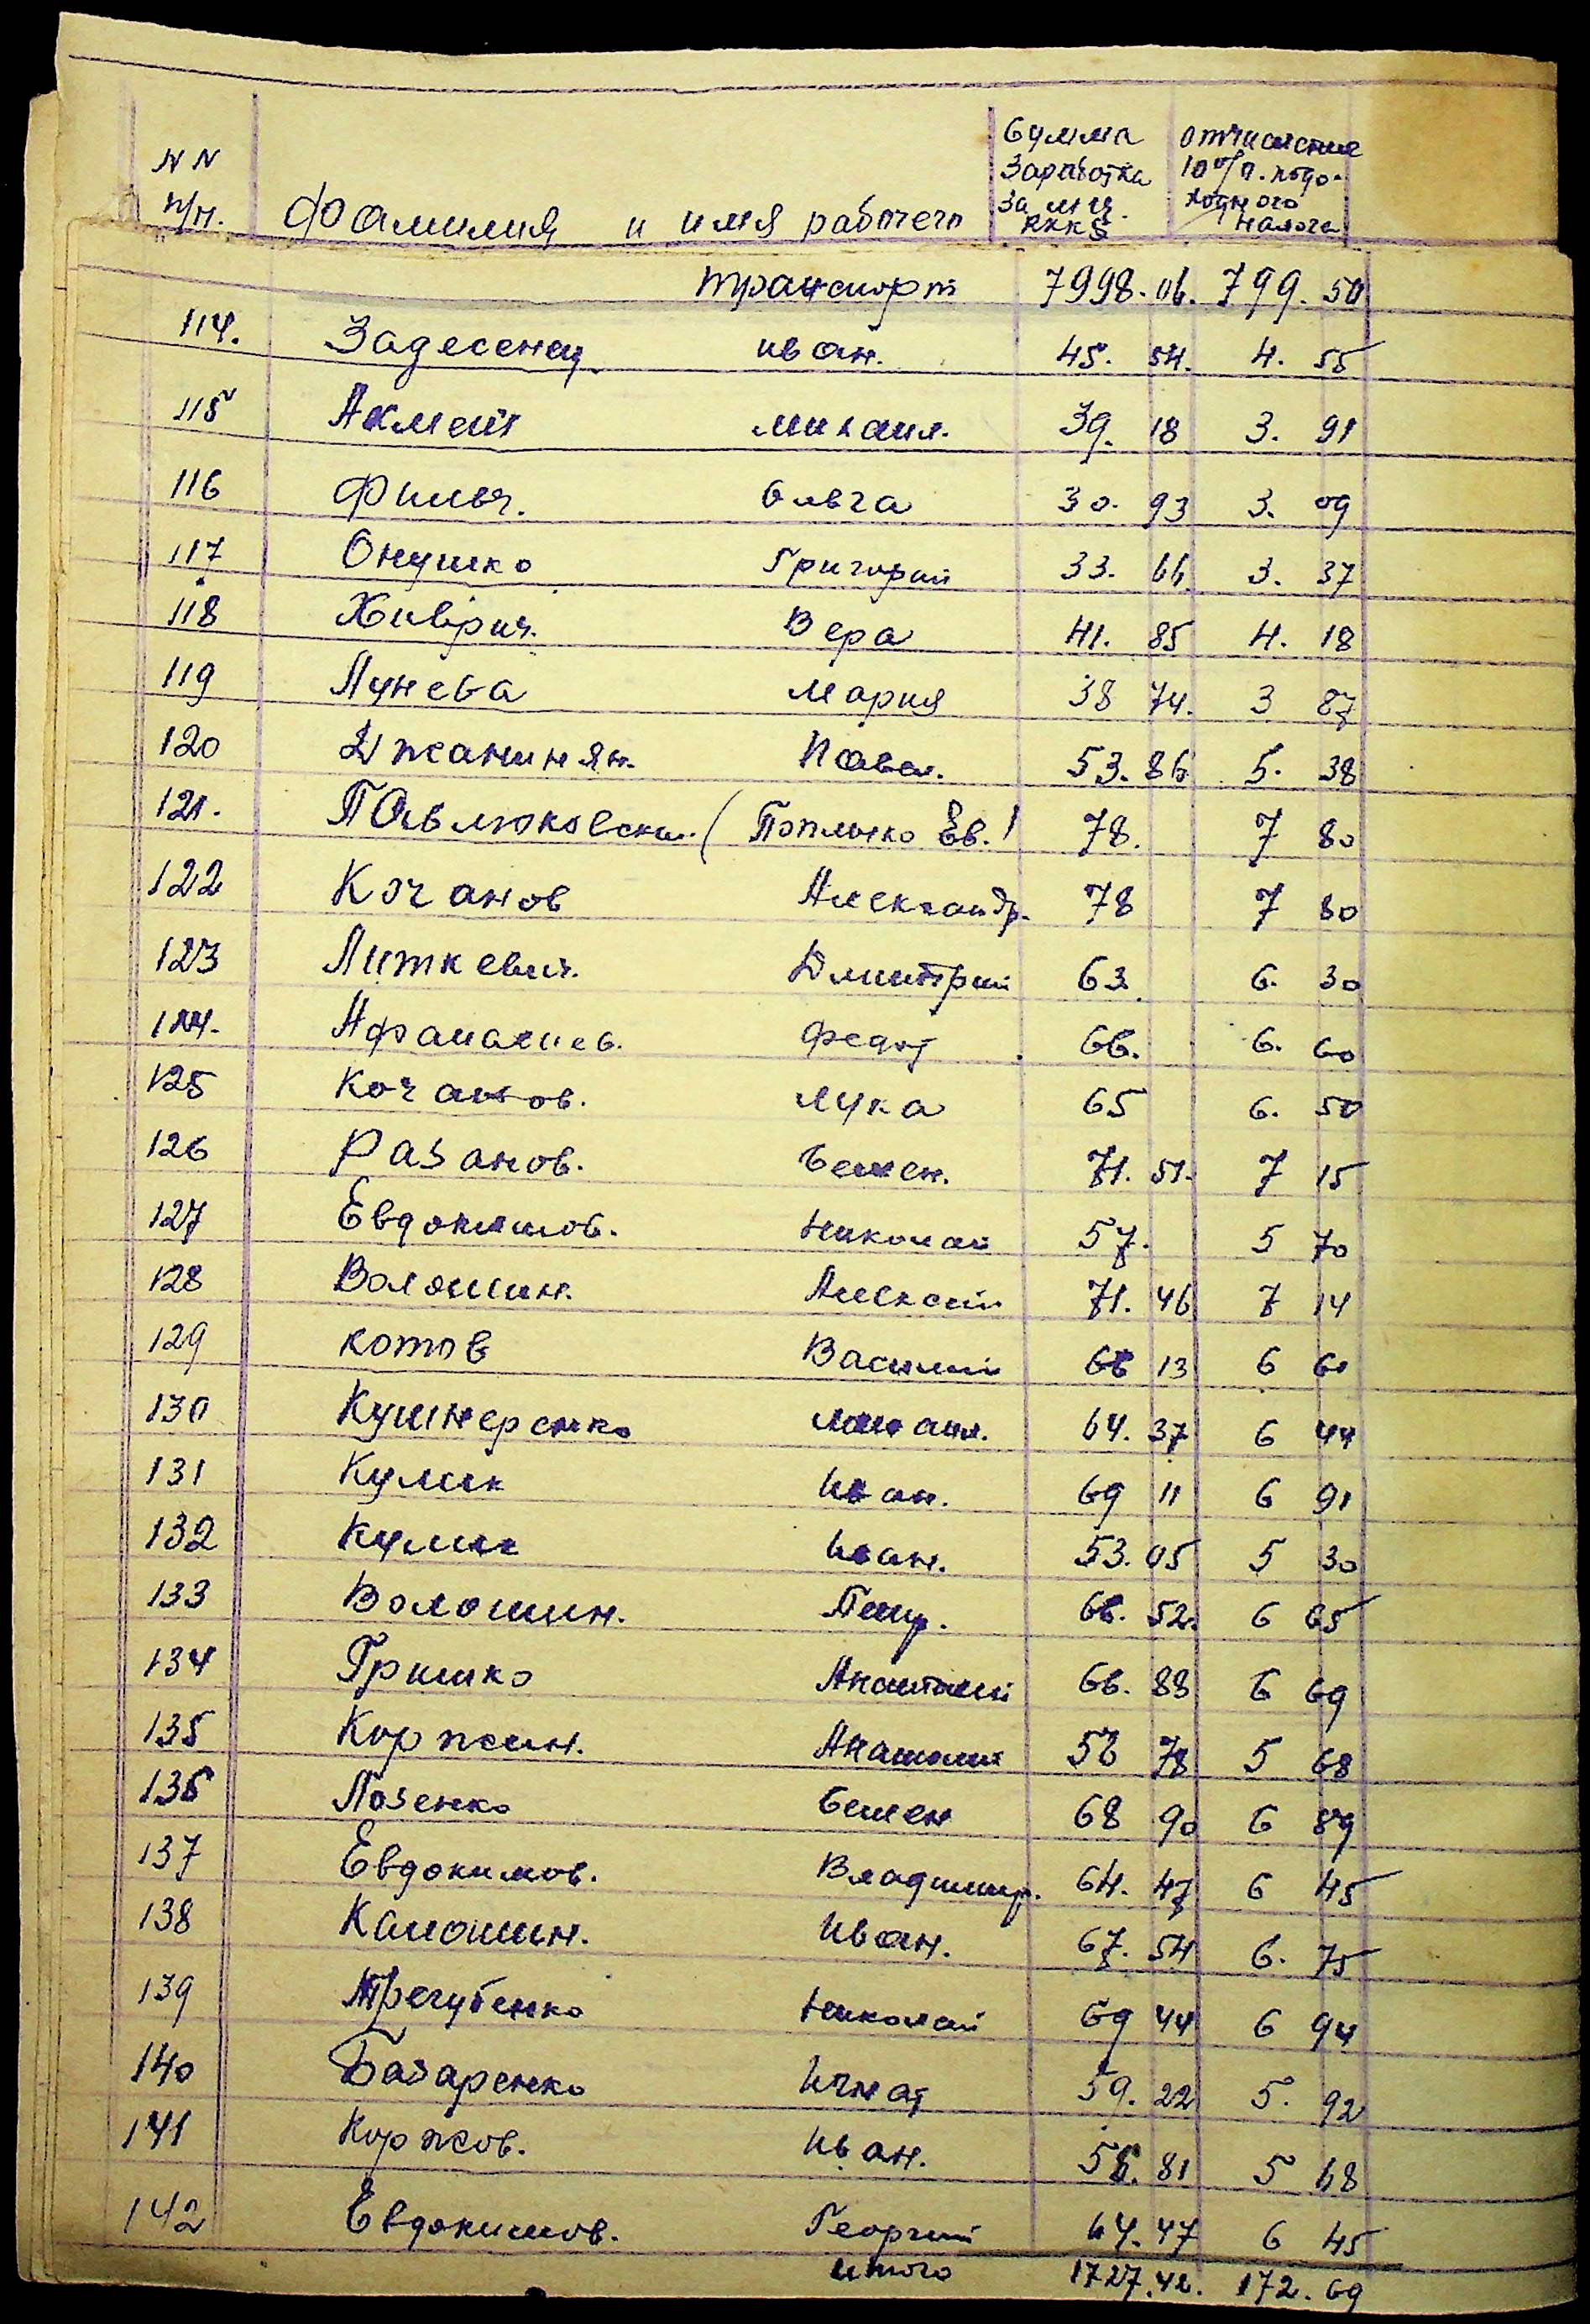 NN п/н. Фамилия и имя рабочего Сумма заработка за м-ц. RKKS Отчисление 10% п. подоходного налога
транспорт 7998. 06. 799. 50
114. Задесенец Иван. 45. 54. 4. 55
115 Акмент Михаил. 39. 18 3. 91
116 Ольга 30. 93 3. 09
117 Онушко Григорий 33. 66. 3. 37
118 Хиврич. Вера 41. 85 4. 18
119 Лунева Мария 38 74. 3 87
120 Джанинян. Павел. 53. 86 5. 38
121. Павлюковская (Поплинко Ев.) 78. 7 80
122 Кочанов Александр. 78 7 80
123 Литкевич. Дмитрий 63. 6. 30
124. Афанасиев. Федот 66. 6. 60
125 Кочанов. Лука 65 6. 50
126 Разанов. Семен. 71. 51. 7 15
127 Евдокимов. Николай 57. 5 70
128 Волошин. Алексей 71. 46 7 14
129 Котов Василий 66 13 6 61
130 Кушнеренко Михаил. 64. 37 6 44
131 Кулик Иван. 69 11 6 91
132 Кулик Иван. 53. 05 5 30
133 Волошин. Петр. 66. 52. 6 65
134 Гришко Анатолий 66. 88 6 69
135 Коржин. Анатолий 56 78 5 68
136 Лозенко Семен 68 90 6 89
137 Евдокимов. Владимир. 64. 47 6 45
138 Камошин. Иван. 67. 54 6. 75
139 Трегубенко Николай 69 44 6 94
140 Базаренко Игнат 59. 22 5. 92
141 Коржов. Иван. 56. 81 5 68
142 Евдокимов. Георгий 64. 47 6 45
итого 1727. 42. 172. 69